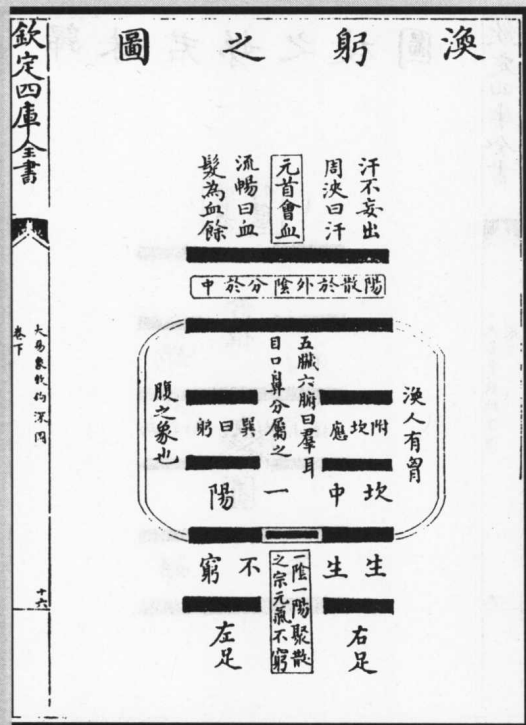 渙躬之圖
汗不妄出
周浹曰汗
元首會血
流暢曰血
髮為血餘
陽散於外陰分於中
渙人有胷
五臟六腑曰羣耳
目口鼻分屬之
附坎應
巽曰躬
腹之象也
坎中一陽
生生不窮
一陰一陽聚散
之宗元氣不窮
右足
左足
欽定四庫全書
大易象數鈎深圖
卷下
十六